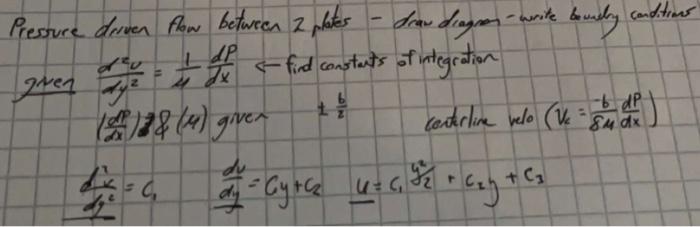 Pressure driven flow between 2 plates - draw diagram - write boundry conditions
given d²u/dy² = 1/μ dP/dx ← find constants of integration
(dP/dx) & (μ) given ± b/2 centerline velo (Vc = -b/8μ dP/dx)
d²u/dy² = C₁ du/dy = C₁y + C₂ u = C₁ y²/2 + C₂y + C₃